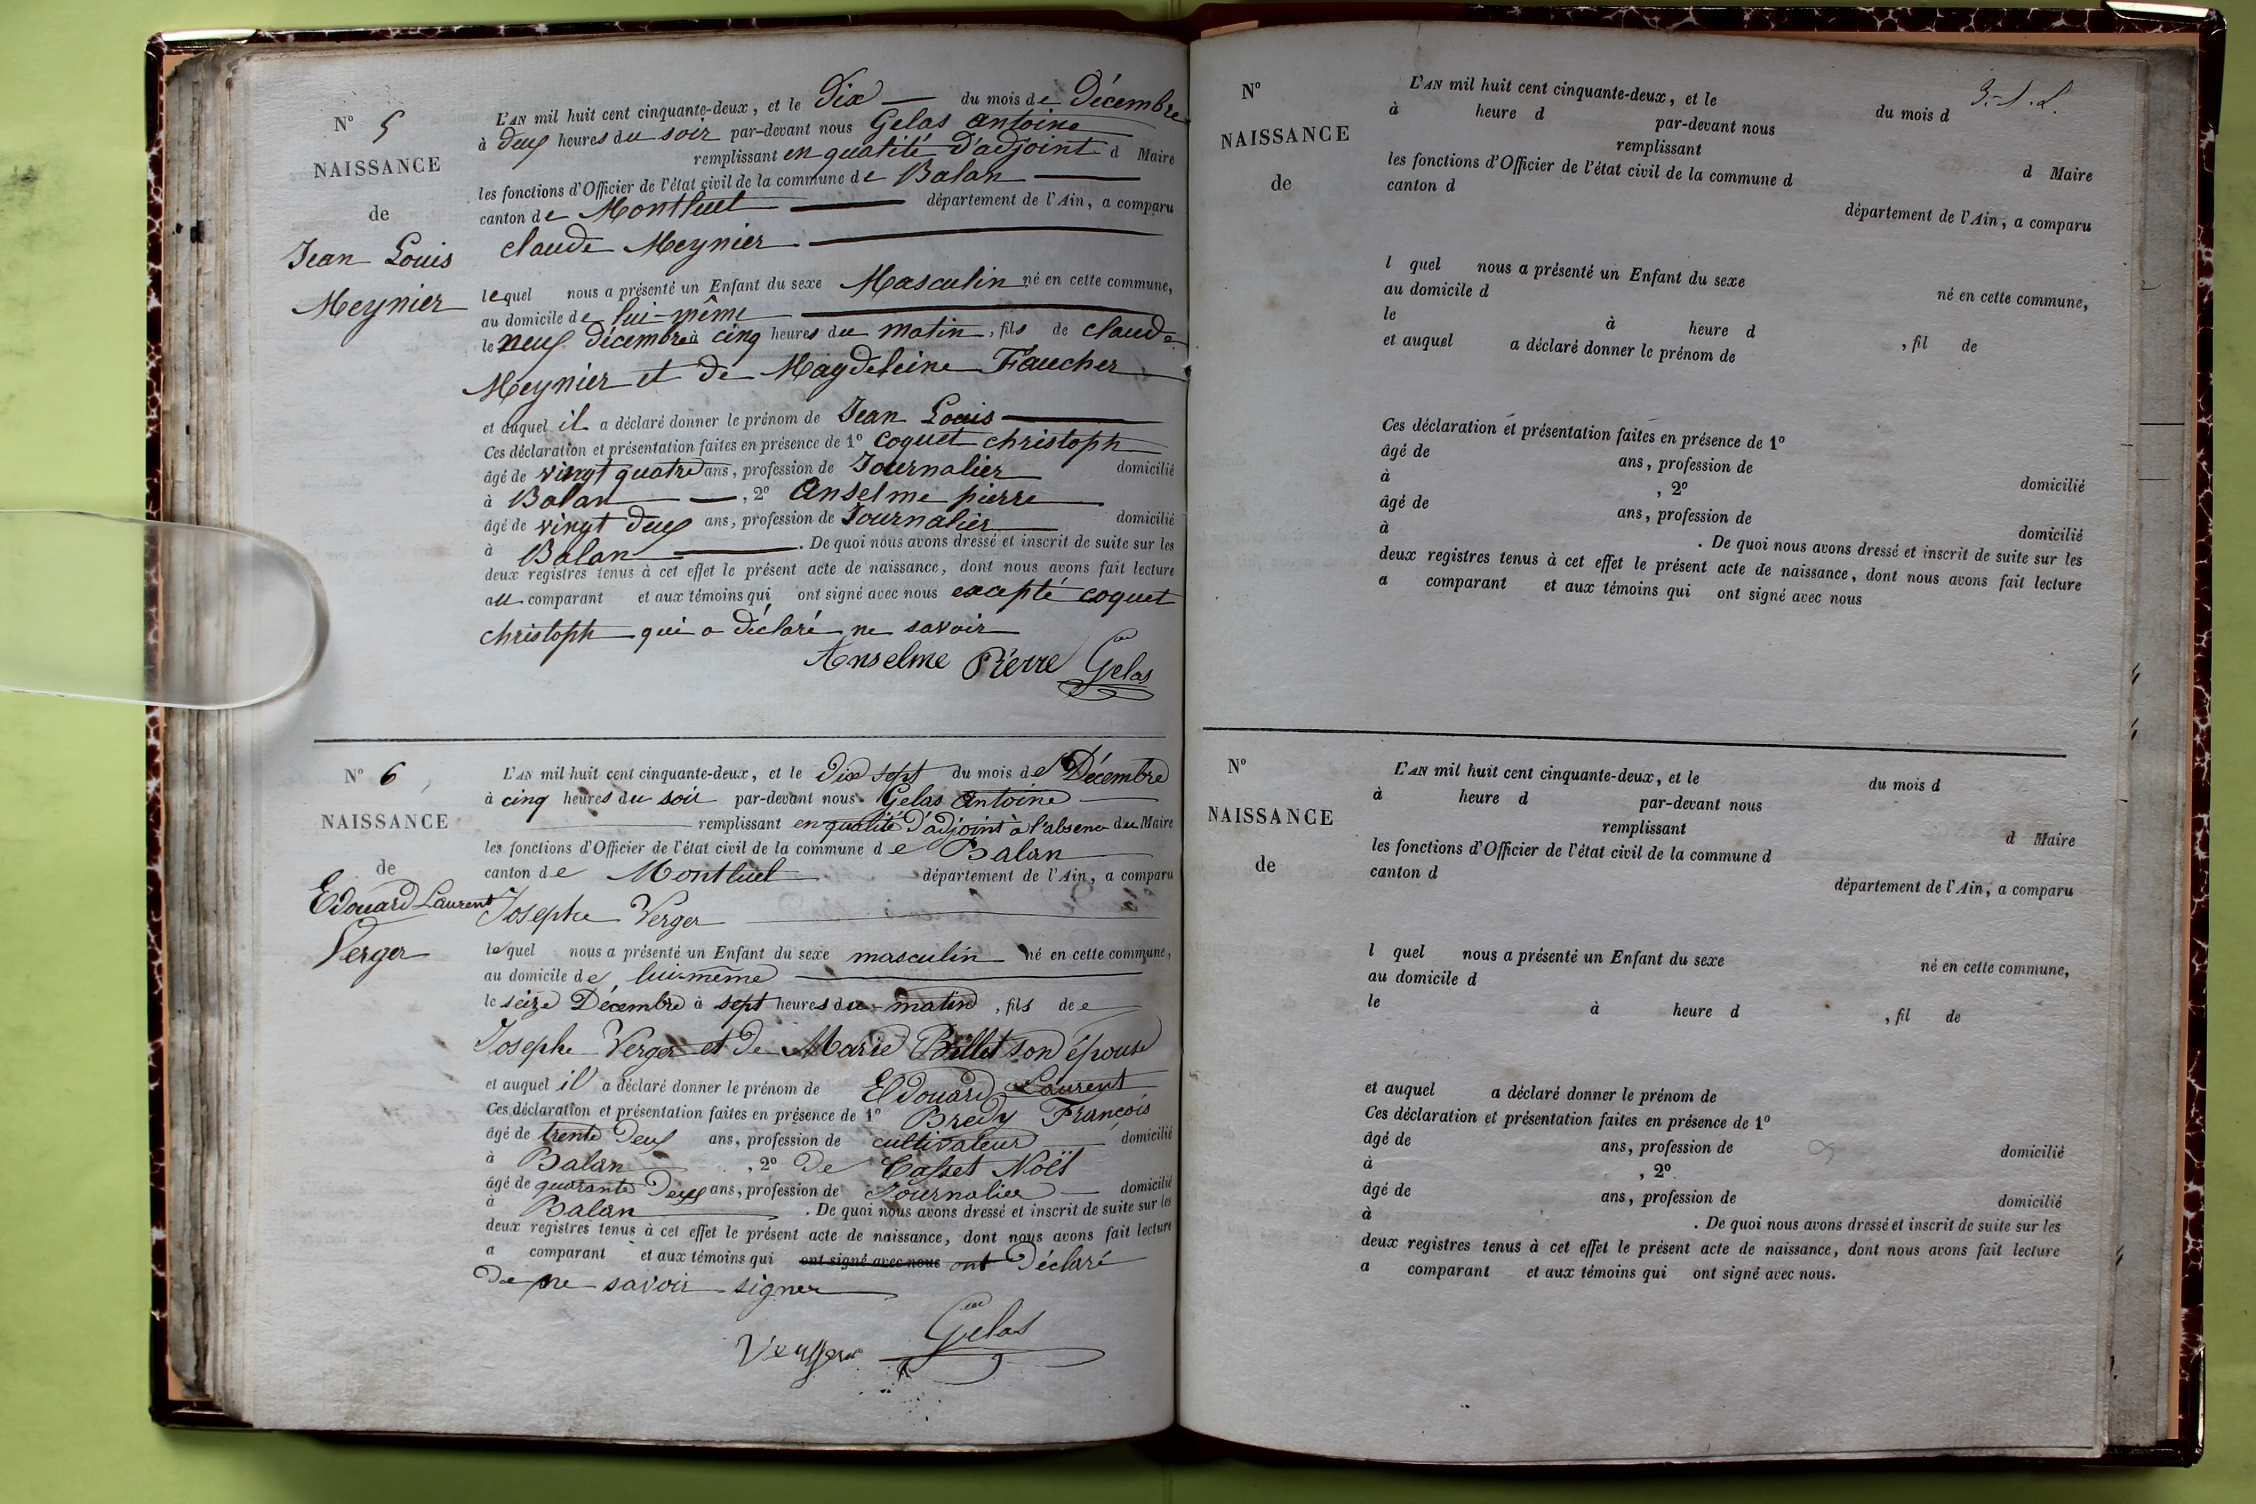 N° 5
NAISSANCE
de
Jean Louis
Meynier
L'AN mil huit cent cinquante-deux, et le dix du mois de Décembre
à deux heures du soir par-devant nous Gelas antoine
remplissant en qualité d'adjoint d Maire
les fonctions d'Officier de l'état civil de la commune de Balan
canton de Montluel département de l'Ain, a comparu
claude Meynier
lequel nous a présenté un Enfant du sexe Masculin né en cette commune,
au domicile de lui-même
le neuf décembre à cinq heures du matin, fils de claude
Meynier et de Magdeleine Faucher
et auquel il a déclaré donner le prénom de Jean Louis
Ces déclaration et présentation faites en présence de 1° coquet christoph
âgé de vingt quatre ans, profession de Journalier domicilié
à Balan , 2° Anselme pierre
âgé de vingt deux ans, profession de Journalier domicilié
à Balan . De quoi nous avons dressé et inscrit de suite sur les
deux registres tenus à cet effet le présent acte de naissance, dont nous avons fait lecture
au comparant et aux témoins qui ont signé avec nous excepté coquet
christoph qui a déclaré ne savoir
Anselme Pierre Gelas
N° 6
NAISSANCE
de
Edouard Laurent
Verger
L'AN mil huit cent cinquante-deux, et le dix sept du mois de Décembre
à cinq heures du soir par-devant nous Gelas Antoine
remplissant en qualité d'adjoint à l'absence du Maire
les fonctions d'Officier de l'état civil de la commune de Balan
canton de Montluel département de l'Ain, a comparu
Josephe Verger
lequel nous a présenté un Enfant du sexe masculin né en cette commune,
au domicile de lui-même
le seize Décembre à sept heures du matin, fils de
Josephe Verger et de Marie Billet son épouse
et auquel il a déclaré donner le prénom de Edouard Laurent
Ces déclaration et présentation faites en présence de 1° Bredy François
âgé de trente deux ans, profession de cultivateur domicilié
à Balan , 2° de Casset Noël
âgé de quarante deux ans, profession de Journalier domicilié
à Balan . De quoi nous avons dressé et inscrit de suite sur les
deux registres tenus à cet effet le présent acte de naissance, dont nous avons fait lecture
a comparant et aux témoins qui ont signé avec nous ont Déclaré
de ne savoir signer
Verger Gelas
N°
NAISSANCE
de
L'AN mil huit cent cinquante-deux, et le du mois d
à heure d par-devant nous
remplissant d Maire
les fonctions d'Officier de l'état civil de la commune d
canton d département de l'Ain, a comparu
l quel nous a présenté un Enfant du sexe né en cette commune,
au domicile d
le à heure d , fil de
et auquel a déclaré donner le prénom de
Ces déclaration et présentation faites en présence de 1°
âgé de ans, profession de domicilié
à , 2°
âgé de ans, profession de domicilié
à . De quoi nous avons dressé et inscrit de suite sur les
deux registres tenus à cet effet le présent acte de naissance, dont nous avons fait lecture
a comparant et aux témoins qui ont signé avec nous
N°
NAISSANCE
de
L'AN mil huit cent cinquante-deux, et le du mois d
à heure d par-devant nous
remplissant d Maire
les fonctions d'Officier de l'état civil de la commune d
canton d département de l'Ain, a comparu
l quel nous a présenté un Enfant du sexe né en cette commune,
au domicile d
le à heure d , fil de
et auquel a déclaré donner le prénom de
Ces déclaration et présentation faites en présence de 1°
âgé de ans, profession de domicilié
à , 2°
âgé de ans, profession de domicilié
à . De quoi nous avons dressé et inscrit de suite sur les
deux registres tenus à cet effet le présent acte de naissance, dont nous avons fait lecture
a comparant et aux témoins qui ont signé avec nous.